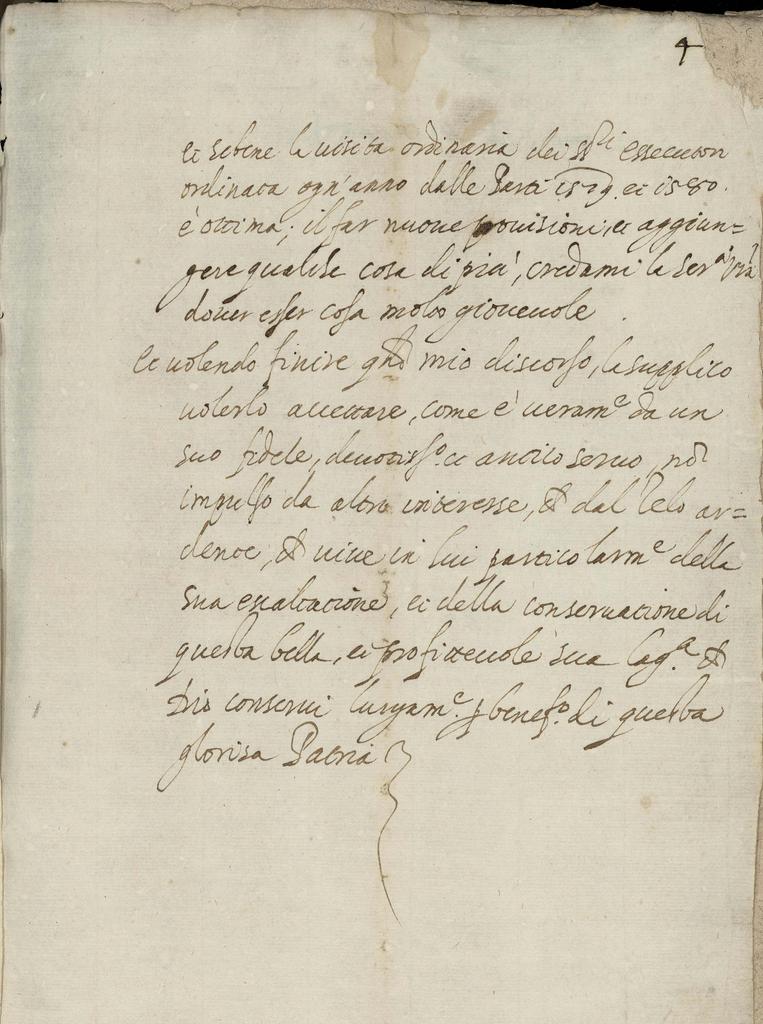 4
et sebene la visita ordinaria dei Ss.ri essecutori
ordinata ogn'anno dalle Parti 1579. et 1580.
è ottima; il far nuove provisioni, et aggiun=
gere qualche cosa di più, credami la Ser.tà V'ra
dover esser cosa molto giovevole.
Et volendo finire q'sto mio discorso, la supplico
volerlo accettare, come è veram.e da un
suo fidele, devotiss.o et antico servo, nō
impulso da altro interesse, ch dal zelo ar=
dente, ch vive in lui particolarm.e della
sua esaltatione, et della conservatione di
questa bella, et profittevole sua Lag.a ch
Dio conservi lungam.e p benef.o di questa
gloriosa Patria